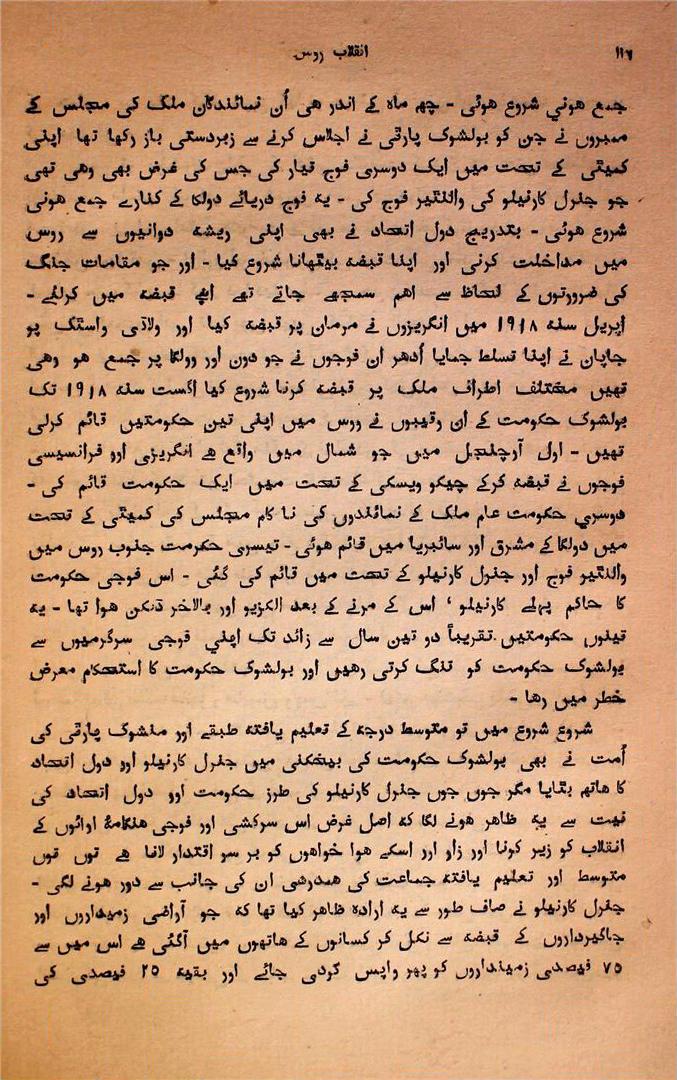 ۱۱۶ انقلاب روس
جمع هوني شروع هوئی - چهه ماه کے اندر هی اُن نمائندکان ملک کی مجلس کے
ممبروں نے جن کو بولشوک پارٹی نے اجلاس کرنے سے زبردستی باز رکھا تھا اپنی
کمیٹی کے تحت میں ایک دوسری فوج تیار کی جس کی غرض بھی وهی تھی
جو جنرل کارنیلو کی والنٹیر فوج کی - یه فوج دریائے دولکا کے کنارے جمع هونی
شروع هوئی - بتدریج دول اتحاد نے بھی اپنی ریشه دوانیوں سے روس
میں مداخلت کرنی اور اپنا قبضه بیٹھانا شروع کیا - اور جو مقامات جنگ
کی ضرورتوں کے لحاظ سے اهم سمجھے جاتے تھے اپنے قبضه میں کرلئے -
اپریل سنه ۱۹۱۸ میں انگریزوں نے مرمان پر قبضه کیا اور ولاڈی واسٹک پو
جاپان نے اپنا تسلط جمایا اُدھر ان فوجوں نے جو دون اور وولگا پر جمع هو وهی
تھیں مختلف اطراف ملک پر قبضه کرنا شروع کیا اگست سنه ۱۹۱۸ تک
بولشوک حکومت کے ان رقیبوں نے روس میں اپنی تین حکومتیں قائم کرلی
تھیں - اول آرچلنجل میں جو شمال میں واقع هے انگریزی اور فرانسیسی
فوجوں نے قبضه کرکے چیکو ویسکی کے تحت میں ایک حکومت قائم کی -
دوسري حکومت عام ملک کے نمائندوں کی نا کام مجلس کی کمیٹی کے تحت
میں دولکا کے مشرق اور سائبریا میں قائم هوئی - تیسری حکومت جنوب روس میں
والنٹیر فوج اور جنرل کارنیلو کے تحت میں قائم کی گئی - اس فوجی حکومت
کا حاکم پہلے کارنیلو ' اس کے مرنے کے بعد الکزیو اور بالاخر ڈنکن هوا تھا - یه
تینوں حکومتیں تقریباً دو تین سال سے زائد تک اپني فوجی سرگرمیوں سے
بولشوک حکومت کو تنگ کرتی رهیں اور بولشوک حکومت کا استحکام معرض
خطر میں رها -
شروع شروع میں تو متوسط درجه کے تعلیم یافته طبقے اور منشوک پارٹی کی
اُمت نے بھی بولشوک حکومت کی بیخکنی میں جنرل کارنیلو اور دول اتحاد
کا هاتھ بٹایا مگر جوں جوں جنرل کارنیلو کی طرز حکومت اور دول اتحاد کی
نیت سے یه ظاهر هونے لگا که اصل غرض اس سرکشی اور فوجی هنگامۂ اوائوں کے
انقلاب کو زیر کونا اور زاو اور اسکے هوا خواهوں کو بر سو اقتدار لانا هے توں توں
متوسط اور تعلیم یافته جماعت کی همدردی ان کی جانب سے دور هونے لگی -
جنرل کارنیلو نے صاف طور سے یه اراده ظاهر کیا تھا که جو آراضی زمینداروں اور
جاگیرداروں کے قبضه سے نکل کر کسانوں کے هاتھوں میں آگئی هے اس میں سے
۷۵ فیصدی زمینداروں کو پھر واپس کردی جائے اور بقیه ۲۵ فیصدی کی